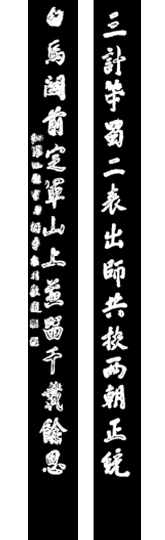 三計茅蜀二表出師共扶兩朝正統
白馬閣前定軍山上並留千載餘恩